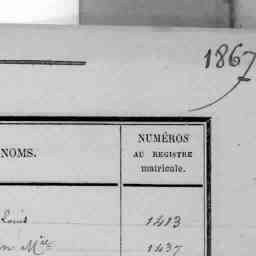 1867
NOMS.
NUMÉROS
AU REGISTRE
matricale.
Louis 1413
n Mie 1437